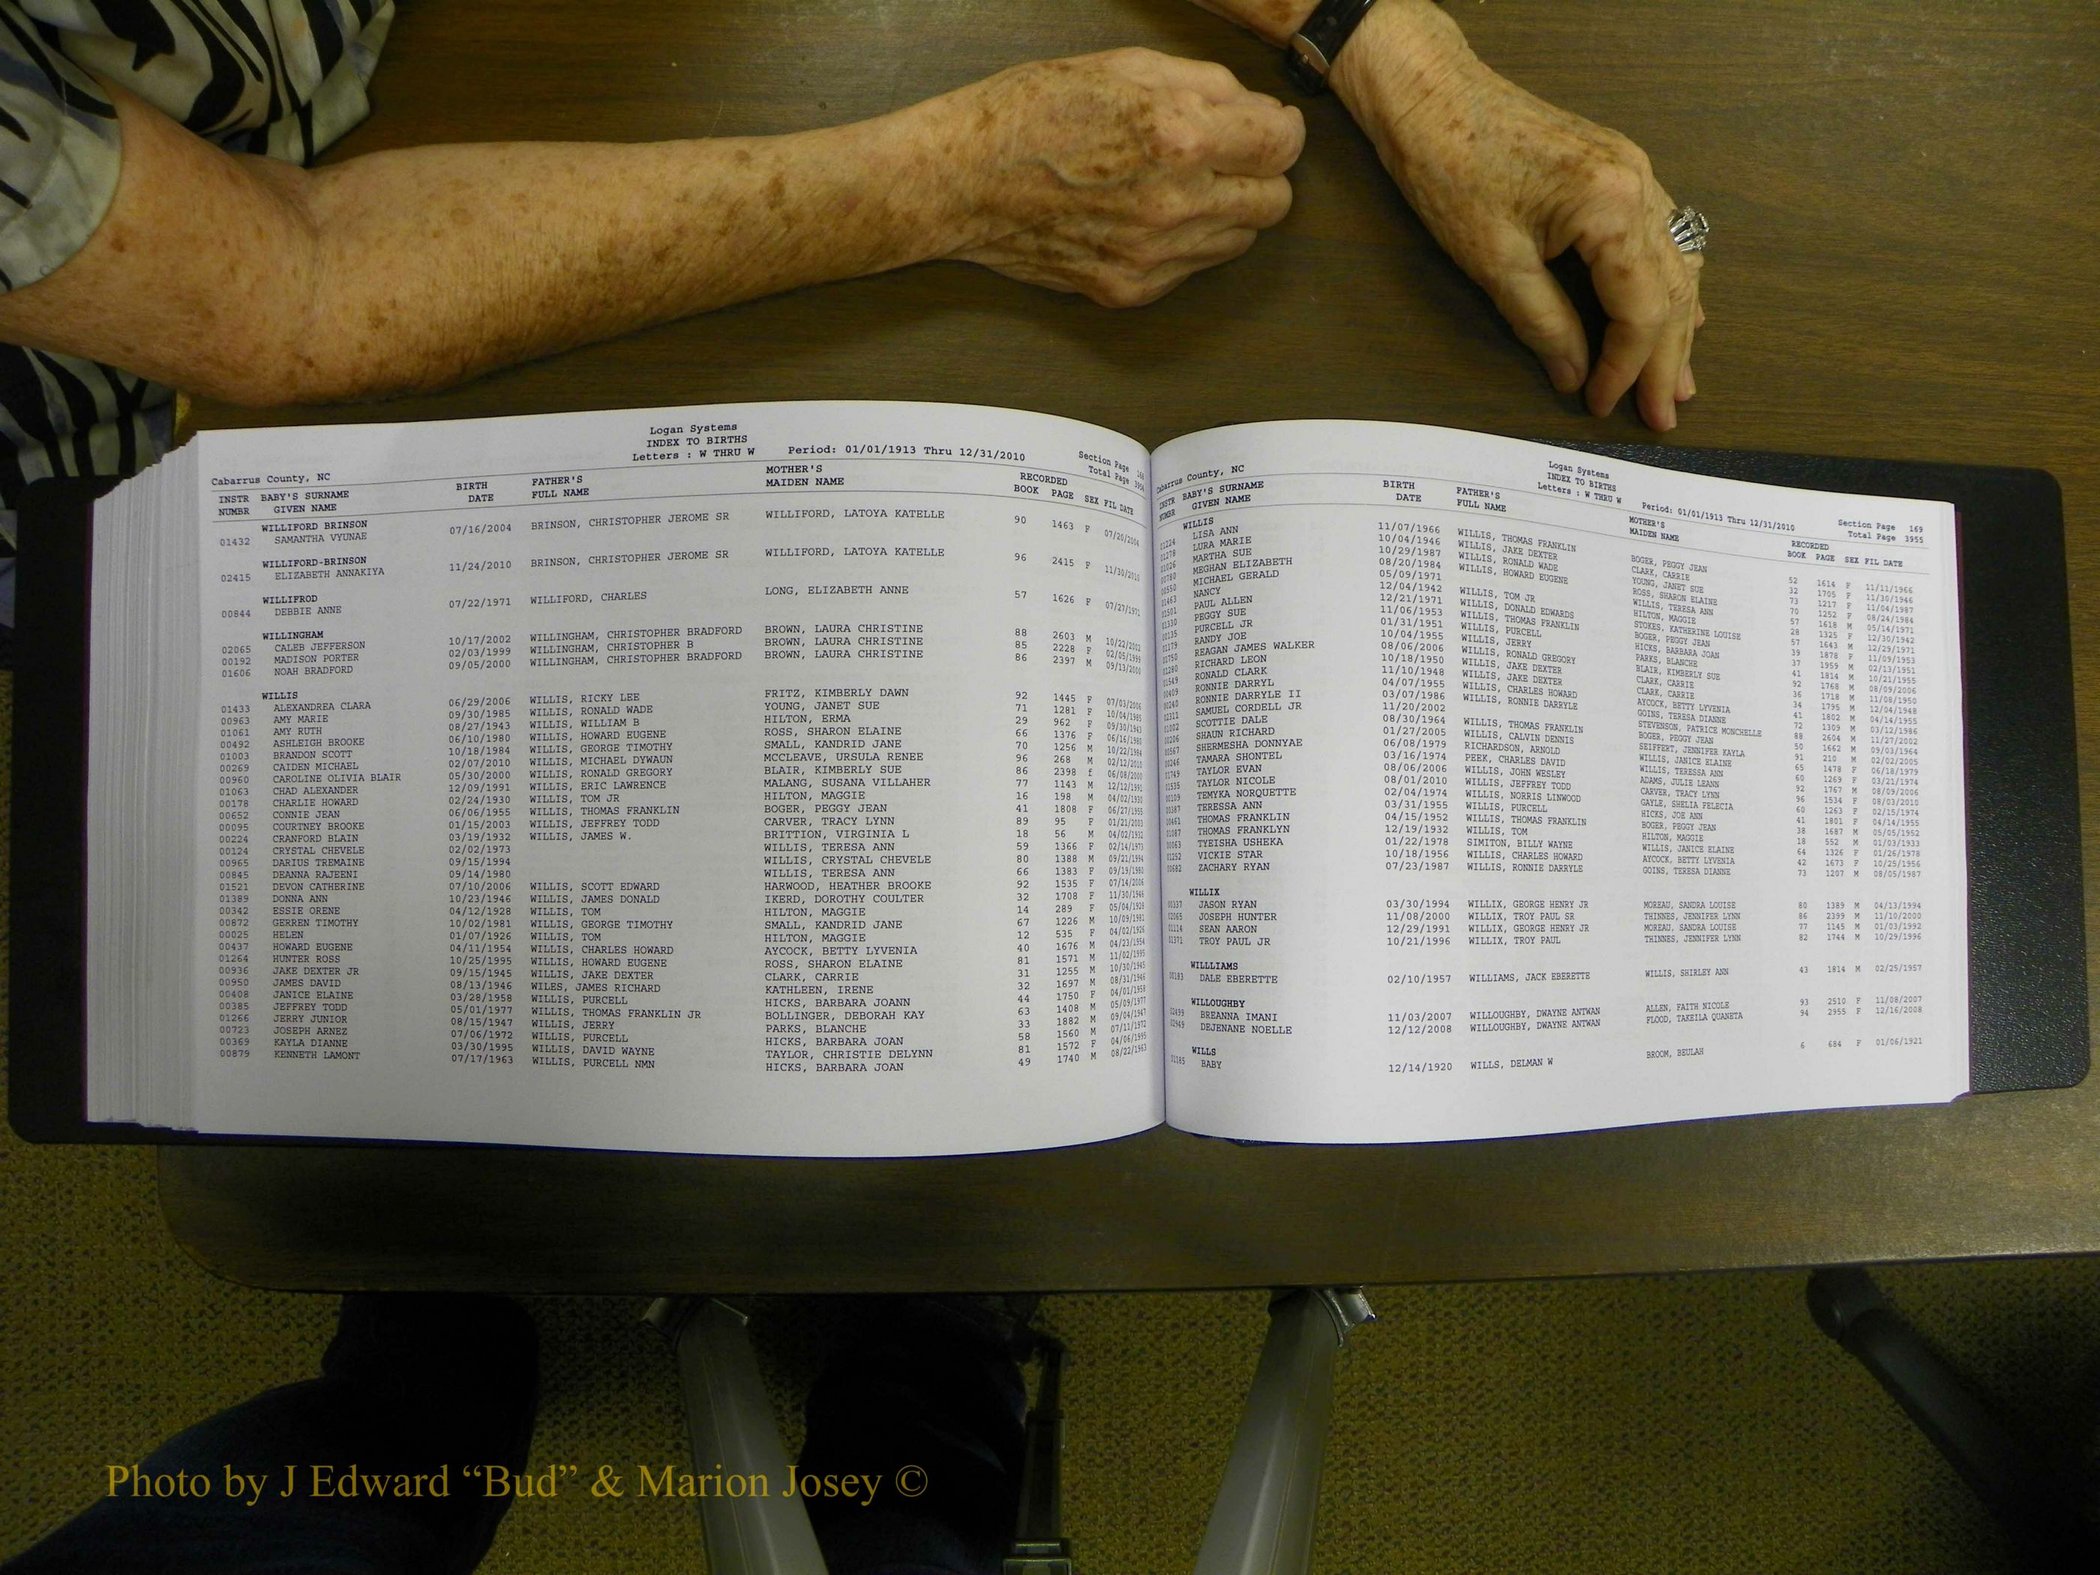 Logan Systems
INDEX TO BIRTHS
Letters : W THRU W Period: 01/01/1913 Thru 12/31/2010
Section Page 168
Total Page 3954
Cabarrus County, NC
INSTR BABY'S SURNAME BIRTH FATHER'S MOTHER'S RECORDED
NUMBR GIVEN NAME DATE FULL NAME MAIDEN NAME BOOK PAGE SEX FIL DATE
WILLIFORD BRINSON
01432 SAMANTHA VYUNAE 07/16/2004 BRINSON, CHRISTOPHER JEROME SR WILLIFORD, LATOYA KATELLE 90 1463 F 07/20/2004
WILLIFORD-BRINSON
02415 ELIZABETH ANNAKIYA 11/24/2010 BRINSON, CHRISTOPHER JEROME SR WILLIFORD, LATOYA KATELLE 96 2415 F 11/30/2010
WILLIFROD
00844 DEBBIE ANNE 07/22/1971 WILLIFORD, CHARLES LONG, ELIZABETH ANNE 57 1626 F 07/27/1971
WILLINGHAM
02065 CALEB JEFFERSON 10/17/2002 WILLINGHAM, CHRISTOPHER BRADFORD BROWN, LAURA CHRISTINE 88 2603 M 10/22/2002
00192 MADISON PORTER 02/03/1999 WILLINGHAM, CHRISTOPHER B BROWN, LAURA CHRISTINE 85 2228 F 02/05/1999
01606 NOAH BRADFORD 09/05/2000 WILLINGHAM, CHRISTOPHER BRADFORD BROWN, LAURA CHRISTINE 86 2397 M 09/13/2000
WILLIS
01433 ALEXANDREA CLARA 06/29/2006 WILLIS, RICKY LEE FRITZ, KIMBERLY DAWN 92 1445 F 07/03/2006
00963 AMY MARIE 09/30/1985 WILLIS, RONALD WADE YOUNG, JANET SUE 71 1281 F 10/04/1985
01061 AMY RUTH 08/27/1943 WILLIS, WILLIAM B HILTON, ERMA 29 962 F 09/30/1943
00492 ASHLEIGH BROOKE 06/10/1980 WILLIS, HOWARD EUGENE ROSS, SHARON ELAINE 66 1376 F 06/16/1980
01003 BRANDON SCOTT 10/18/1984 WILLIS, GEORGE TIMOTHY SMALL, KANDRID JANE 70 1256 M 10/22/1984
00269 CAIDEN MICHAEL 02/07/2010 WILLIS, MICHAEL DYWAUN MCCLEAVE, URSULA RENEE 96 268 M 02/12/2010
00960 CAROLINE OLIVIA BLAIR 05/30/2000 WILLIS, RONALD GREGORY BLAIR, KIMBERLY SUE 86 2398 f 06/08/2000
01063 CHAD ALEXANDER 12/09/1991 WILLIS, ERIC LAWRENCE MALANG, SUSANA VILLAHER 77 1143 M 12/12/1991
00178 CHARLIE HOWARD 02/24/1930 WILLIS, TOM JR HILTON, MAGGIE 16 198 M 04/02/1930
00652 CONNIE JEAN 06/06/1955 WILLIS, THOMAS FRANKLIN BOGER, PEGGY JEAN 41 1808 F 06/27/1955
00095 COURTNEY BROOKE 01/15/2003 WILLIS, JEFFREY TODD CARVER, TRACY LYNN 89 95 F 01/21/2003
00224 CRANFORD BLAIN 03/19/1932 WILLIS, JAMES W. BRITTION, VIRGINIA L 18 56 M 04/02/1932
00124 CRYSTAL CHEVELE 02/02/1973 WILLIS, TERESA ANN 59 1366 F 02/14/1973
00965 DARIUS TREMAINE 09/15/1994 WILLIS, CRYSTAL CHEVELE 80 1388 M 09/21/1994
00845 DEANNA RAJEENI 09/14/1980 WILLIS, TERESA ANN 66 1383 F 09/19/1980
01521 DEVON CATHERINE 07/10/2006 WILLIS, SCOTT EDWARD HARWOOD, HEATHER BROOKE 92 1535 F 07/14/2006
01389 DONNA ANN 10/23/1946 WILLIS, JAMES DONALD IKERD, DOROTHY COULTER 32 1708 F 11/30/1946
00342 ESSIE ORENE 04/12/1928 WILLIS, TOM HILTON, MAGGIE 14 289 F 05/04/1928
00872 GERREN TIMOTHY 10/02/1981 WILLIS, GEORGE TIMOTHY SMALL, KANDRID JANE 67 1226 M 10/09/1981
00025 HELEN 01/07/1926 WILLIS, TOM HILTON, MAGGIE 12 535 F 04/02/1926
00437 HOWARD EUGENE 04/11/1954 WILLIS, CHARLES HOWARD AYCOCK, BETTY LYVENIA 40 1676 M 04/23/1954
01264 HUNTER ROSS 10/25/1995 WILLIS, HOWARD EUGENE ROSS, SHARON ELAINE 81 1571 M 11/02/1995
00936 JAKE DEXTER JR 09/15/1945 WILLIS, JAKE DEXTER CLARK, CARRIE 31 1255 M 10/30/1945
00950 JAMES DAVID 08/13/1946 WILES, JAMES RICHARD KATHLEEN, IRENE 32 1697 M 08/31/1946
00408 JANICE ELAINE 03/28/1958 WILLIS, PURCELL HICKS, BARBARA JOANN 44 1750 F 04/01/1958
00385 JEFFREY TODD 05/01/1977 WILLIS, THOMAS FRANKLIN JR BOLLINGER, DEBORAH KAY 63 1408 M 05/09/1977
01266 JERRY JUNIOR 08/15/1947 WILLIS, JERRY PARKS, BLANCHE 33 1882 M 09/04/1947
00723 JOSEPH ARNEZ 07/06/1972 WILLIS, PURCELL HICKS, BARBARA JOAN 58 1560 M 07/11/1972
00369 KAYLA DIANNE 03/30/1995 WILLIS, DAVID WAYNE TAYLOR, CHRISTIE DELYNN 81 1572 F 04/06/1995
00879 KENNETH LAMONT 07/17/1963 WILLIS, PURCELL NMN HICKS, BARBARA JOAN 49 1740 M 08/22/1963
Logan Systems
INDEX TO BIRTHS
Letters : W THRU W Period: 01/01/1913 Thru 12/31/2010
Section Page 169
Total Page 3955
Cabarrus County, NC
INSTR BABY'S SURNAME BIRTH FATHER'S MOTHER'S RECORDED
NUMBR GIVEN NAME DATE FULL NAME MAIDEN NAME BOOK PAGE SEX FIL DATE
WILLIS
01224 LISA ANN 11/07/1966 WILLIS, THOMAS FRANKLIN BOGER, PEGGY JEAN 52 1614 F 11/11/1966
01278 LURA MARIE 10/04/1946 WILLIS, JAKE DEXTER CLARK, CARRIE 32 1705 F 11/30/1946
01026 MARTHA SUE 10/29/1987 WILLIS, RONALD WADE YOUNG, JANET SUE 73 1217 F 11/04/1987
00780 MEGHAN ELIZABETH 08/20/1984 WILLIS, HOWARD EUGENE ROSS, SHARON ELAINE 70 1252 F 08/24/1984
00550 MICHAEL GERALD 05/09/1971 WILLIS, TERESA ANN 57 1618 M 05/14/1971
01463 NANCY 12/04/1942 WILLIS, TOM JR HILTON, MAGGIE 28 1325 F 12/30/1942
01501 PAUL ALLEN 12/21/1971 WILLIS, DONALD EDWARDS STOKES, KATHERINE LOUISE 57 1643 M 12/29/1971
01330 PEGGY SUE 11/06/1953 WILLIS, THOMAS FRANKLIN BOGER, PEGGY JEAN 39 1878 F 11/09/1953
00135 PURCELL JR 01/31/1951 WILLIS, PURCELL HICKS, BARBARA JOAN 37 1959 M 02/13/1951
01179 RANDY JOE 10/04/1955 WILLIS, JERRY PARKS, BLANCHE 41 1814 M 10/21/1955
01750 REAGAN JAMES WALKER 08/06/2006 WILLIS, RONALD GREGORY BLAIR, KIMBERLY SUE 92 1768 M 08/09/2006
01280 RICHARD LEON 10/18/1950 WILLIS, JAKE DEXTER CLARK, CARRIE 36 1718 M 11/08/1950
01549 RONALD CLARK 11/10/1948 WILLIS, JAKE DEXTER CLARK, CARRIE 34 1795 M 12/04/1948
00409 RONNIE DARRYL 04/07/1955 WILLIS, CHARLES HOWARD AYCOCK, BETTY LYVENIA 41 1802 M 04/14/1955
00240 RONNIE DARRYLE II 03/07/1986 WILLIS, RONNIE DARRYLE GOINS, TERESA DIANNE 72 1309 M 03/12/1986
02311 SAMUEL CORDELL JR 11/20/2002 STEVENSON, PATRICE MONCHELLE 88 2604 M 11/27/2002
01002 SCOTTIE DALE 08/30/1964 WILLIS, THOMAS FRANKLIN BOGER, PEGGY JEAN 50 1662 M 09/03/1964
00206 SHAUN RICHARD 01/27/2005 WILLIS, CALVIN DENNIS SEIFFERT, JENNIFER KAYLA 91 210 M 02/02/2005
00567 SHERMESHA DONNYAE 06/08/1979 RICHARDSON, ARNOLD WILLIS, JANICE ELAINE 65 1478 F 06/18/1979
00246 TAMARA SHONTEL 03/16/1974 PEEK, CHARLES DAVID WILLIS, TERESSA ANN 60 1269 F 03/21/1974
01749 TAYLOR EVAN 08/06/2006 WILLIS, JOHN WESLEY ADAMS, JULIE LEANN 92 1767 M 08/09/2006
01535 TAYLOR NICOLE 08/01/2010 WILLIS, JEFFREY TODD CARVER, TRACY LYNN 96 1534 F 08/03/2010
00109 TEMYKA NORQUETTE 02/04/1974 WILLIS, NORRIS LINWOOD GAYLE, SHELIA FELECIA 60 1263 F 02/15/1974
00387 TERESSA ANN 03/31/1955 WILLIS, PURCELL HICKS, JOE ANN 41 1801 F 04/14/1955
00461 THOMAS FRANKLIN 04/15/1952 WILLIS, THOMAS FRANKLIN BOGER, PEGGY JEAN 38 1687 M 05/05/1952
01087 THOMAS FRANKLYN 12/19/1932 WILLIS, TOM HILTON, MAGGIE 18 552 M 01/03/1933
00063 TYEISHA USHEKA 01/22/1978 SIMITON, BILLY WAYNE WILLIS, JANICE ELAINE 64 1326 F 01/26/1978
01252 VICKIE STAR 10/18/1956 WILLIS, CHARLES HOWARD AYCOCK, BETTY LYVENIA 42 1673 F 10/25/1956
00682 ZACHARY RYAN 07/23/1987 WILLIS, RONNIE DARRYLE GOINS, TERESA DIANNE 73 1207 M 08/05/1987
WILLIX
00337 JASON RYAN 03/30/1994 WILLIX, GEORGE HENRY JR MOREAU, SANDRA LOUISE 80 1389 M 04/13/1994
02065 JOSEPH HUNTER 11/08/2000 WILLIX, TROY PAUL SR THINNES, JENNIFER LYNN 86 2399 M 11/10/2000
01114 SEAN AARON 12/29/1991 WILLIX, GEORGE HENRY JR MOREAU, SANDRA LOUISE 77 1145 M 01/03/1992
01371 TROY PAUL JR 10/21/1996 WILLIX, TROY PAUL THINNES, JENNIFER LYNN 82 1744 M 10/29/1996
WILLLIAMS
00183 DALE EBERETTE 02/10/1957 WILLIAMS, JACK EBERETTE WILLIS, SHIRLEY ANN 43 1814 M 02/25/1957
WILLOUGHBY
02499 BREANNA IMANI 11/03/2007 WILLOUGHBY, DWAYNE ANTWAN ALLEN, FAITH NICOLE 93 2510 F 11/08/2007
02949 DEJENANE NOELLE 12/12/2008 WILLOUGHBY, DWAYNE ANTWAN FLOOD, TAKEILA QUANETA 94 2955 F 12/16/2008
WILLS
01185 BABY 12/14/1920 WILLS, DELMAN W BROOM, BEULAH 6 684 F 01/06/1921
Photo by J Edward “Bud” & Marion Josey ©